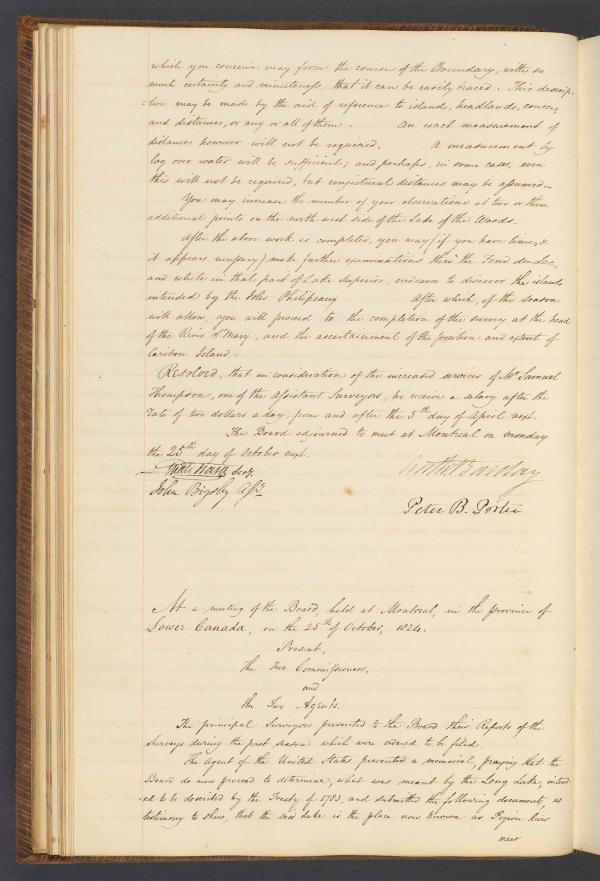 which you conceive may form the course of the Boundary, with so
much certainty and minuteness, that it can be easily traced. This descrip-
=tion may be made by the aid of reference to islands, headlands, courses,
and distances, or any or all of them. An exact measurement of
distances however will not be required. A measurement by
log over water will be sufficient; and perhaps, in some cases, even
this will not be required, but conjectural distances may be assumed.
You may increase the number of your observations at two or three
additional points on the north west side of the Lake of the Woods.
After the above work is completed, you may (if you have time, &
it appears necessary) make further examinations thro' the Fond du Lac,
and while in that part of Lake Superior, endeavor to discover the islands
intended by the Isles Philipeaux. After which, if the season
will allow, you will proceed to the completion of the survey at the head
of the River St Mary, and the ascertainment of the position and extent of
Caribou Island.
Resolved, that in consideration of the increased services of Mr Samuel
Thompson, one of the Assistant Surveyors, he receive a salary after the
rate of two dollars a day, from and after the 5th day of April next.
The Board adjourned to meet at Montreal on monday
the 25th day of October next.
Secy.
John Bigsby Asst
Anth: Barclay
Peter B. Porter
At a meeting of the Board, held at Montreal, in the province of
Lower Canada, on the 25th of October, 1824.
Present,
The Two Commissioners,
and
the Two Agents.
The principal Surveyors presented to the Board their Reports of the
surveys during the past season which were ordered to be filed.
The Agent of the United States presented a memorial, praying that the
Board do now proceed to determine, what was meant by the Long Lake, intend-
ed to be described by the Treaty of 1783, and submitted the following documents, as
testimony to shew, that the said Lake is the place now known as Pigeon River
near